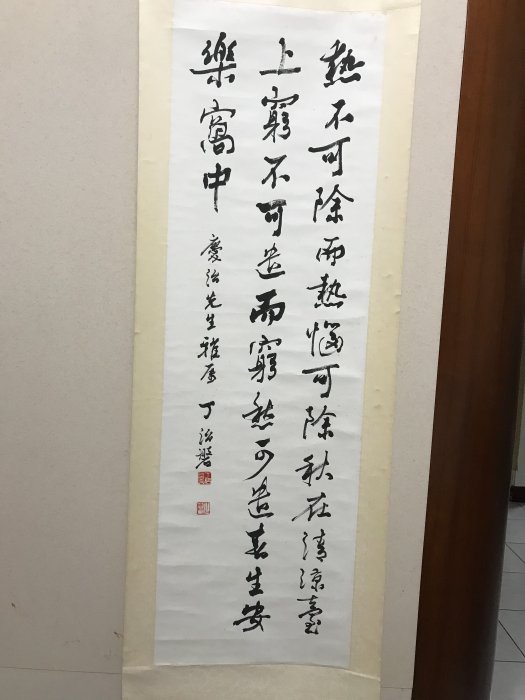 熱不可除而熱惱可除秋在清涼臺
上窮不可遣而窮愁可遣春生安
樂窩中
慶治先生雅屬 丁治磐